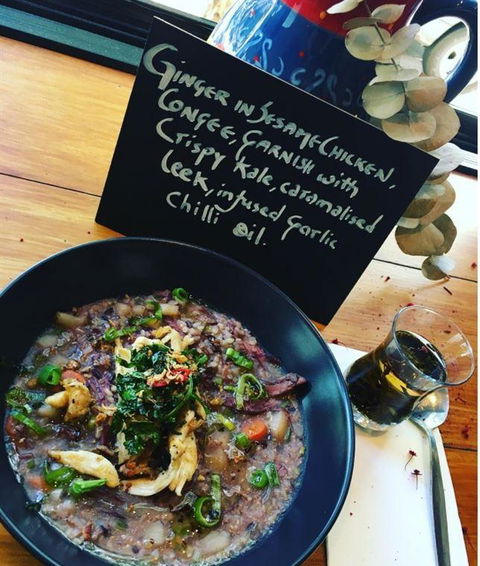 GINGER IN SESAME CHICKEN,
CONGEE, GARNISH with
Crispy Kale, caramalised
leek, infused Garlic
Chilli Oil.